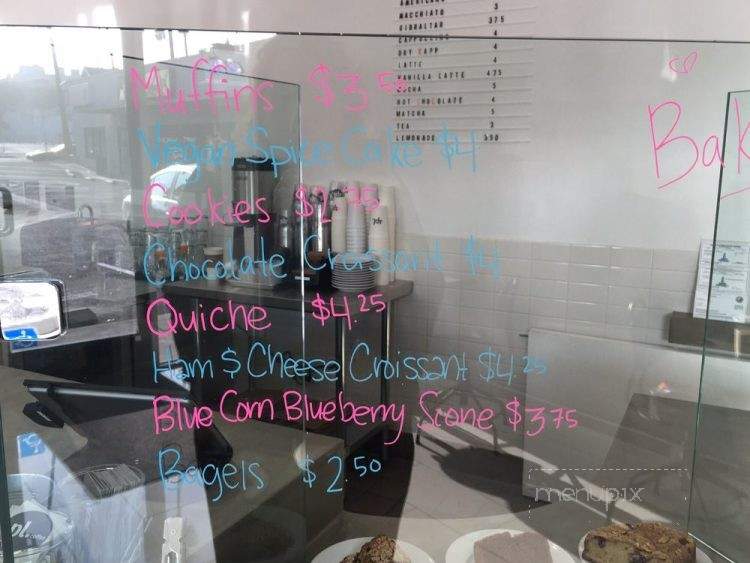 MACCHIATO 3
GIBRALTAR 375
CAPPUCCINO 4
4
LATTE 4
VANILLA LATTE 475
5
HOT CHOCOLATE 4
MATCHA 5
TEA 3
LEMONADE 350
Muffins $3.50
Vegan Spice Cake $4
Cookies $2.75
Chocolate Croissant $4
Quiche $4.25
Ham $ Cheese Croissant $4.25
Blue Corn Blueberry Scone $3.75
Bagels $2.50
Bak
menupix